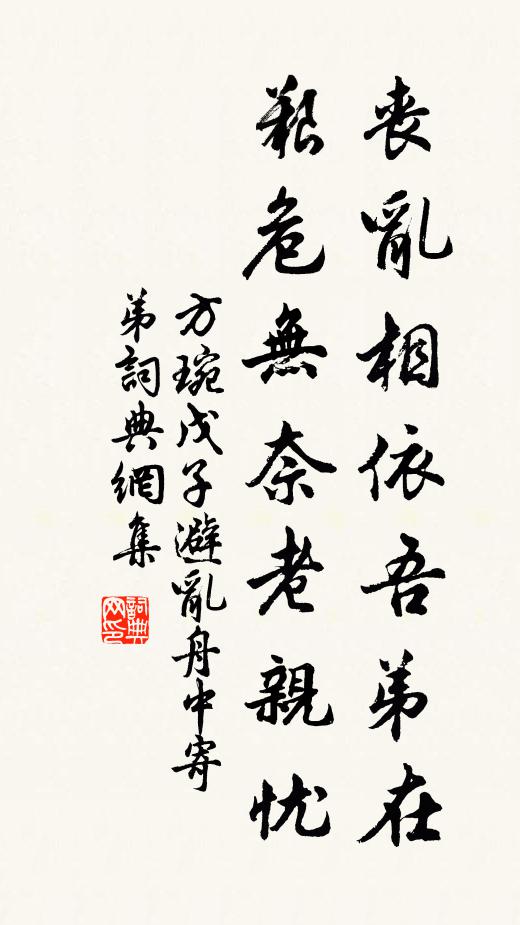 喪亂相依吾弟在
艱危無奈老親忧
方琬戊子避亂舟中寄
弟詞典網集
詞典网印